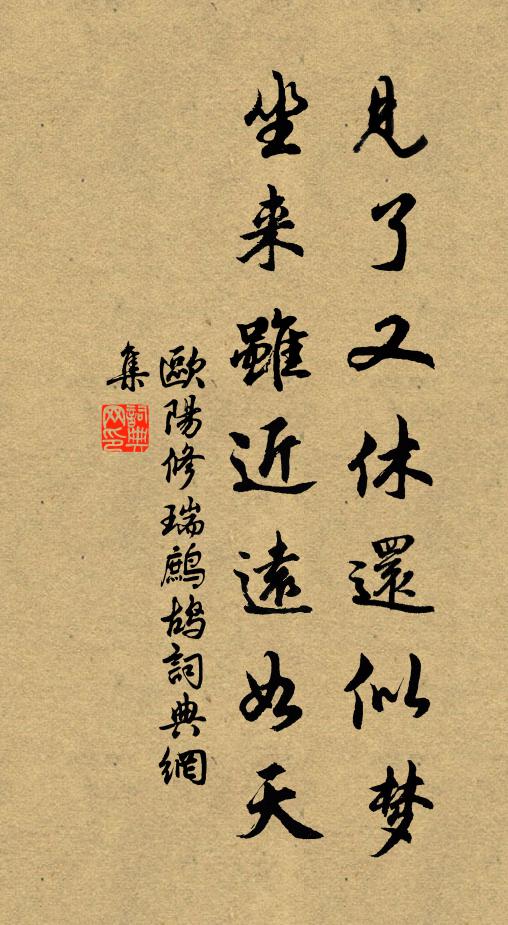 見了又休還似梦
坐来雖近遠如天
歐陽修瑞鷓鴣詞典網
集
詞典
网印